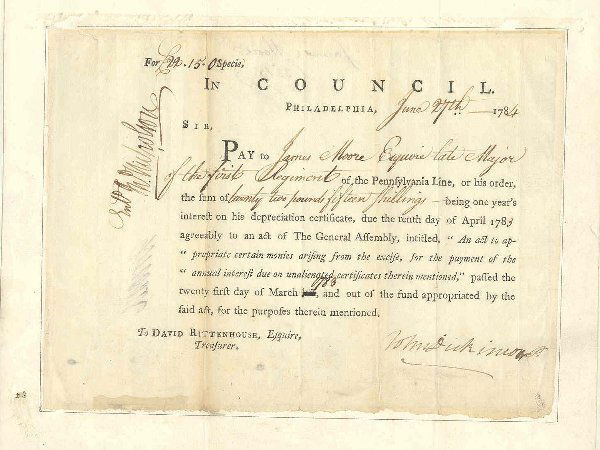 For £22.15.0 Specie,
IN COUNCIL.
PHILADELPHIA, June 27th 1784
SIR,
PAY to James Moore Esquire late Major
of the first Regiment of the Pennsylvania Line, or his order,
the sum of twenty two pounds fifteen shillings — being one year's
interest on his depreciation certificate, due the tenth day of April 1783
agreeably to an act of The General Assembly, intitled, “ An act to ap-
“ propriate certain monies arising from the excise, for the payment of the
“ annual interest due on unalienated certificates therein mentioned,” passed the
twenty first day of March 1783, and out of the fund appropriated by the
said act, for the purposes therein mentioned.
To DAVID RITTENHOUSE, Esquire,
Treasurer.
John Dickinson